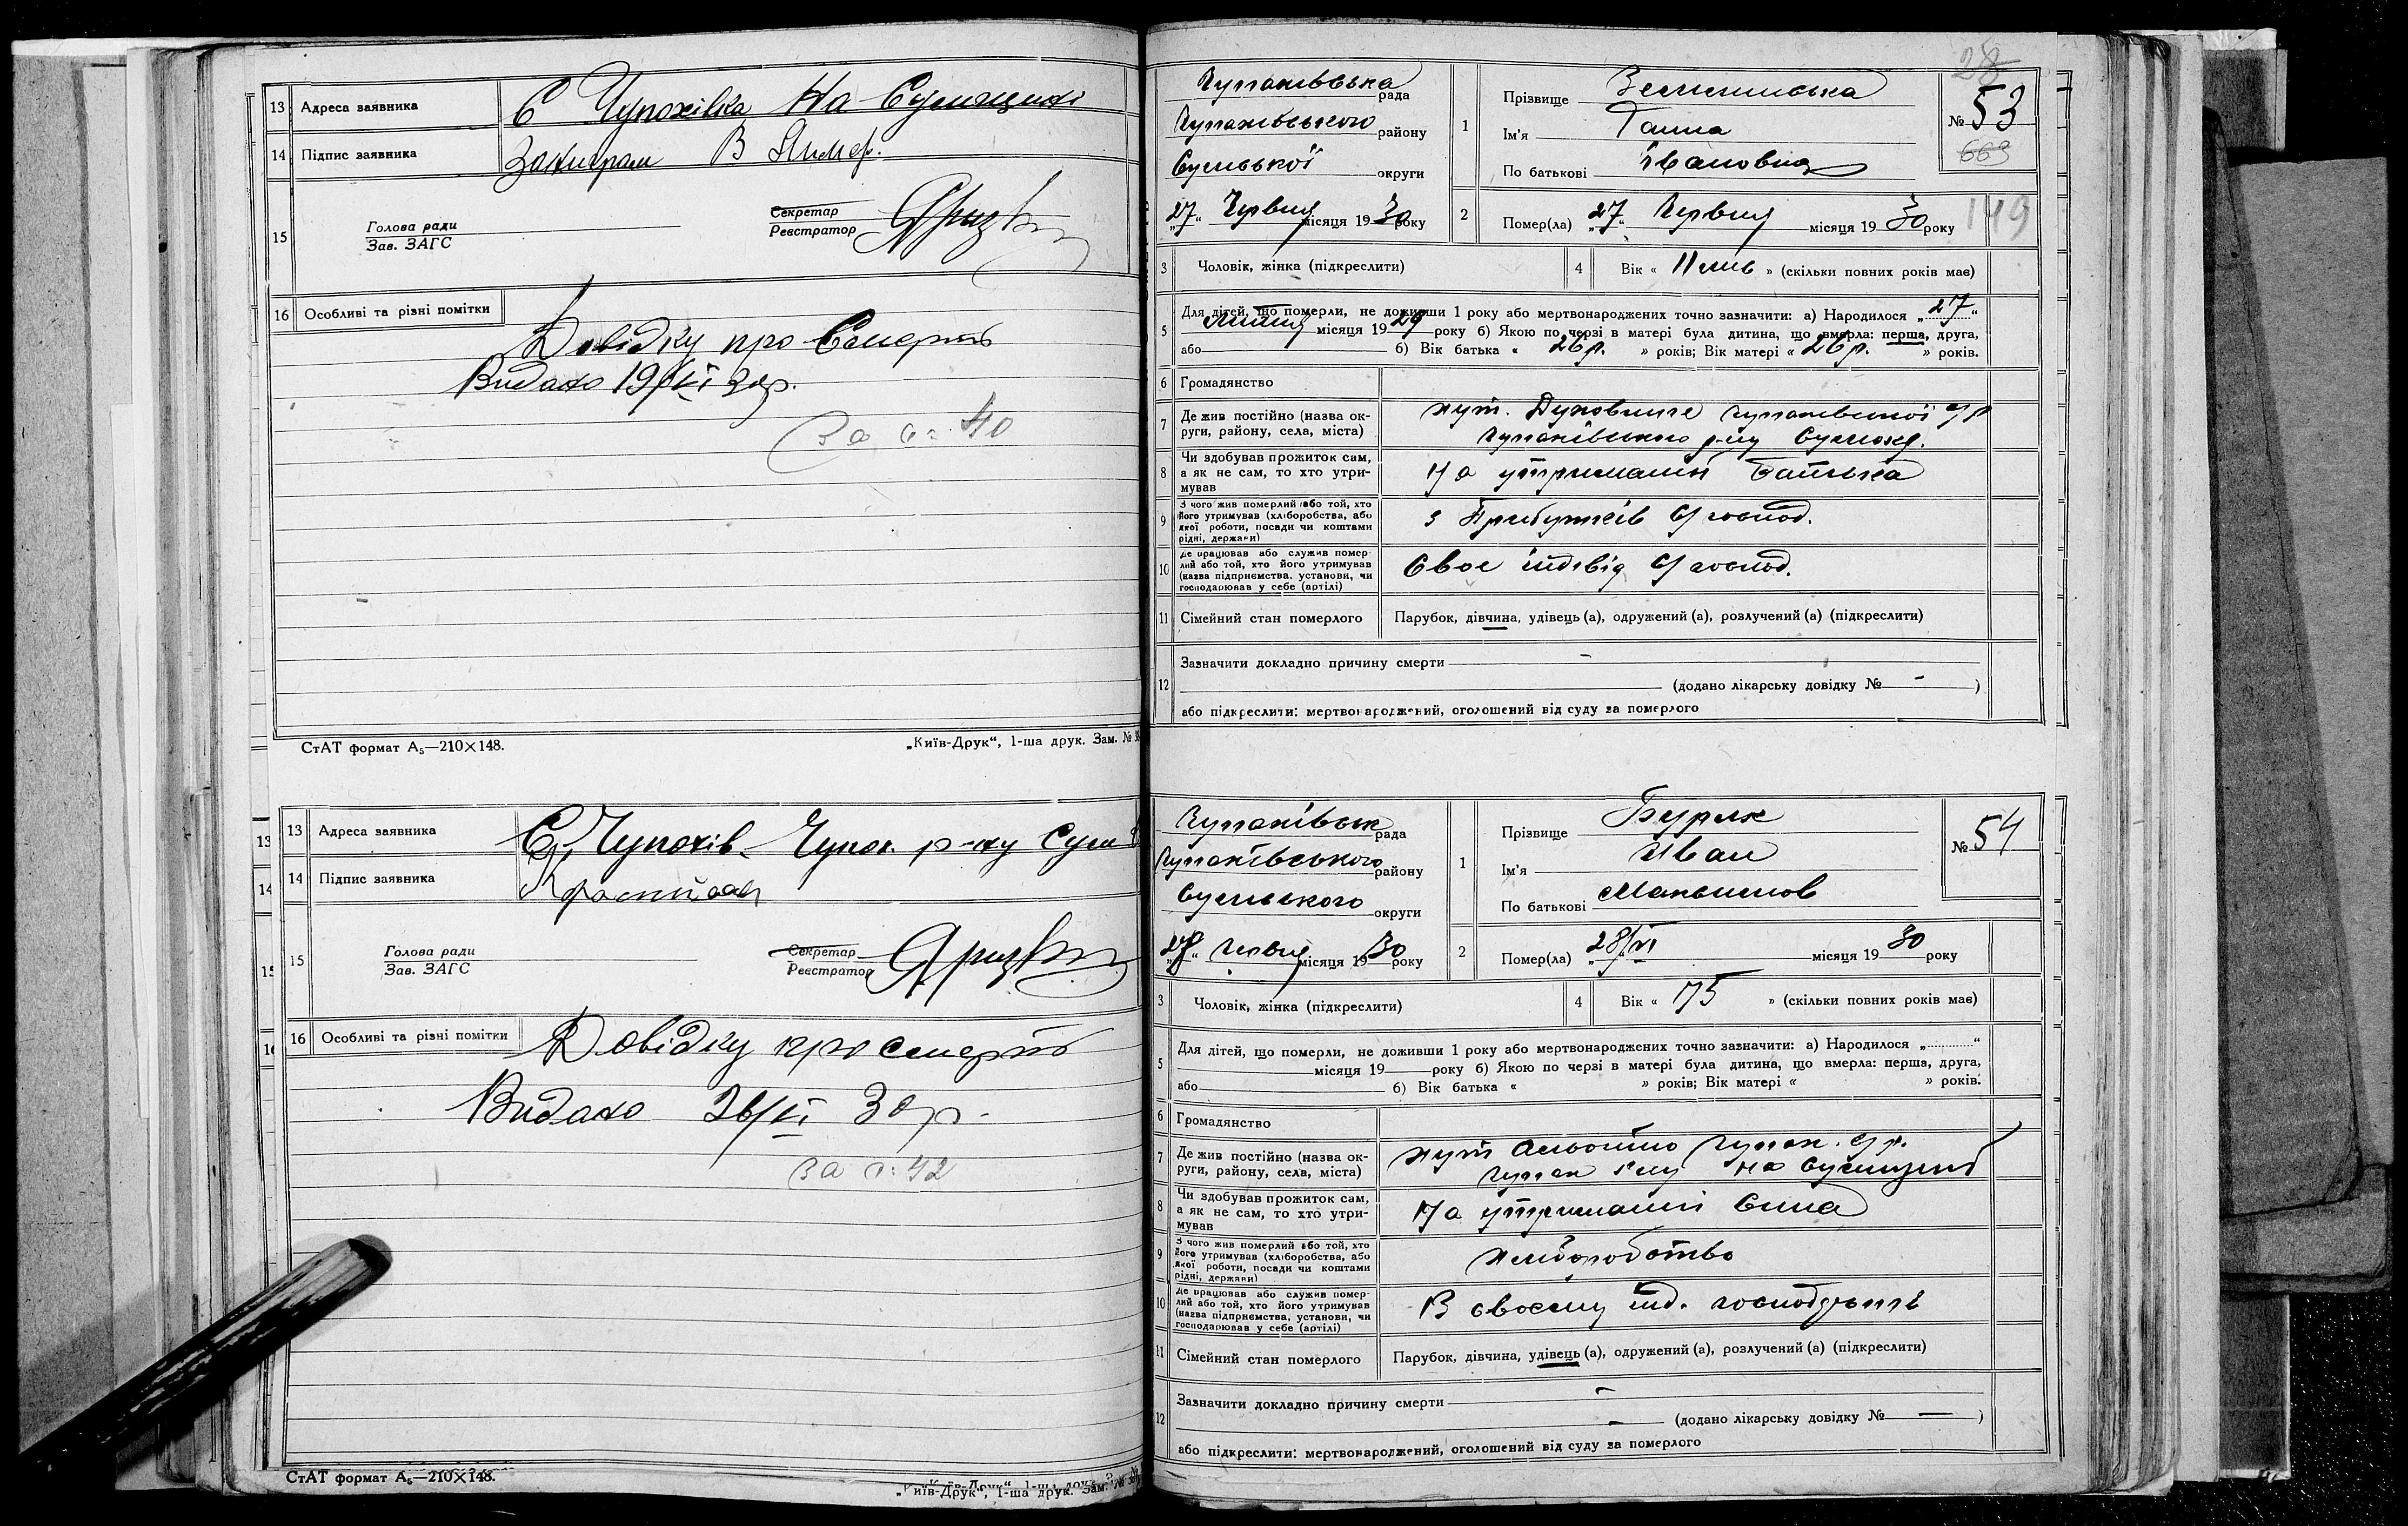 13 Адреса заявника С Чупохівка На Сумщині
14 Підпис заявника В
15 Голова ради
Зав. ЗАГС
Секретар
Реєстратор
16 Особливі та різні помітки
Довідку про Смерть
Видано 19/VI 30р.
за с: 40
СтАТ формат А5—210×148. „Київ-Друк“, 1-ша друк. Зам. №
13 Адреса заявника С. Чупохів. Чупох. р-ну Сум
14 Підпис заявника
15 Голова ради
Зав. ЗАГС
Секретар
Реєстратор
16 Особливі та різні помітки
Довідку про смерть
Видано 26/VI 30р.
за с: 42
СтАТ формат А5—210×148.
„Київ-Друк“, 1-ша друк. Зам. №
28
Чупахівська рада
Чупахівського району
Сумської округи
„27“ Червня місяця 1930 року
1 Прізвище
Ім'я Ганна
По батькові Івановна
№ 53
663
2 Помер(ла) „27“ Червня місяця 1930 року 149
3 Чоловік, жінка (підкреслити)
4 Вік « 11 міс » (скільки повних років має)
5 Для дітей, що померли, не доживши 1 року або мертвонароджених точно зазначити: а) Народилося „27“
Липня місяця 1929 року б) Якою по черзі в матері була дитина, що вмерла: перша, друга,
або б) Вік батька « 26 р. » років; Вік матері « 26 р. » років.
6 Громадянство
7 Де жив постійно (назва округи, району, села, міста) хут. Чупахівської с/р
Чупахівського р-ну Сумокр.
8 Чи здобував прожиток сам, а як не сам, то хто утримував На утриманні батька
9 З чого жив померлий або той, хто його утримував (хліборобства, або якої роботи, посади чи коштами рідні, держави) з Прибутків С/господ.
10 Де працював або служив померлий або той, хто його утримував (назва підприємства, установи, чи господарював у себе (артілі) Своє індивід С/господ.
11 Сімейний стан померлого Парубок, дівчина, удівець (а), одружений (а), розлучений (а) (підкреслити)
12 Зазначити докладно причину смерти -
(додано лікарську довідку № - )
або підкреслити: мертвонароджений, оголошений від суду за померлого
Чупахівськ рада
Чупахівського району
Сумського округи
„28“ Червня місяця 1930 року
1 Прізвище Буряк
Ім'я Иван
По батькові Максимов
№ 54
2 Помер(ла) „28/VI“ місяця 1930 року
3 Чоловік, жінка (підкреслити)
4 Вік « 75 » (скільки повних років має)
5 Для дітей, що померли, не доживши 1 року або мертвонароджених точно зазначити: а) Народилося „ “
місяця 19 року б) Якою по черзі в матері була дитина, що вмерла: перша, друга,
або б) Вік батька « » років; Вік матері « » років.
6 Громадянство
7 Де жив постійно (назва округи, району, села, міста) хут Чупах. с/р.
Чупах р-ну на Сумщині
8 Чи здобував прожиток сам, а як не сам, то хто утримував На утриманні Сина
9 З чого жив померлий або той, хто його утримував (хліборобства, або якої роботи, посади чи коштами рідні, держави) хліборобство
10 Де працював або служив померлий або той, хто його утримував (назва підприємства, установи, чи господарював у себе (артілі) В своєму інд. господрьстві
11 Сімейний стан померлого Парубок, дівчина, удівець (а), одружений (а), розлучений (а) (підкреслити)
12 Зазначити докладно причину смерти -
(додано лікарську довідку № — )
або підкреслити: мертвонароджений, оголошений від суду за померлого